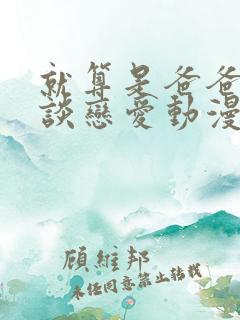 就算是爸爸
談戀愛動漫
顧維邦
未經同意禁止轉載